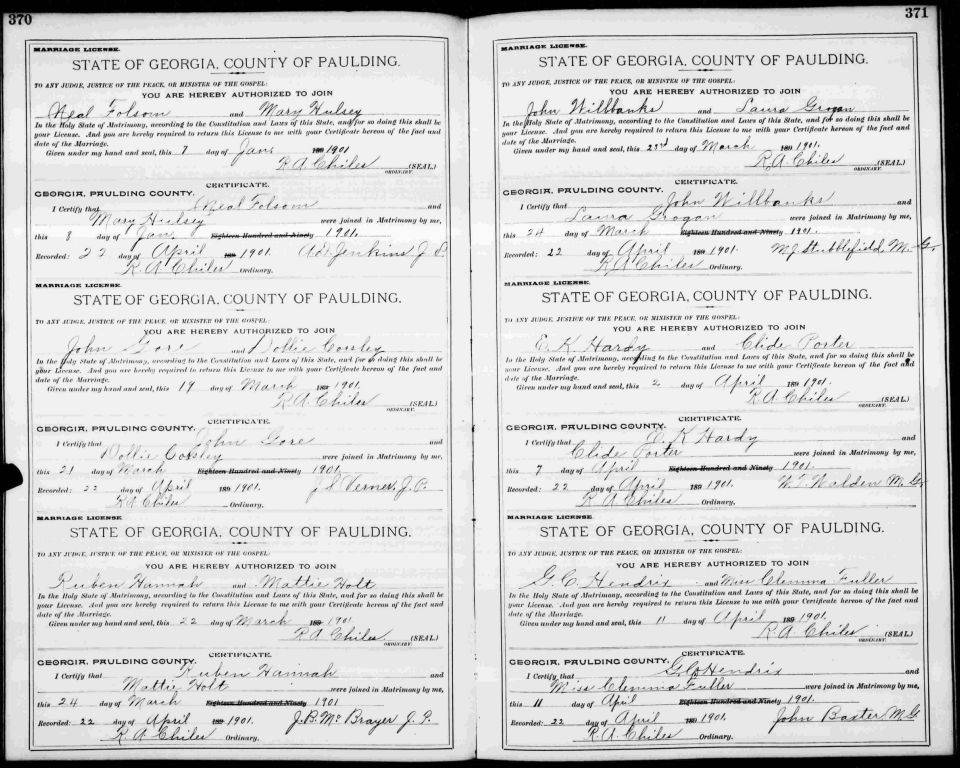 370
MARRIAGE LICENSE.
STATE OF GEORGIA, COUNTY OF PAULDING.
TO ANY JUDGE, JUSTICE OF THE PEACE, OR MINISTER OF THE GOSPEL:
YOU ARE HEREBY AUTHORIZED TO JOIN
Neal Folsom and Mary Hulsey
In the Holy State of Matrimony, according to the Constitution and Laws of this State, and for so doing this shall be
your License. And you are hereby required to return this License to me with your Certificate hereon of the fact and
date of the Marriage.
Given under my hand and seal, this 7 day of Jany 189 1901
R. A. Chiles (SEAL)
ORDINARY.
CERTIFICATE.
GEORGIA, PAULDING COUNTY.
I Certify that Neal Folsom and
Mary Hulsey were joined in Matrimony by me,
this 8 day of Jan. Eighteen Hundred and Ninety 1901.
Recorded: 22 day of April 189 1901. Jenkins J. P.
R A Chiles Ordinary.
MARRIAGE LICENSE.
STATE OF GEORGIA, COUNTY OF PAULDING.
TO ANY JUDGE, JUSTICE OF THE PEACE, OR MINISTER OF THE GOSPEL:
YOU ARE HEREBY AUTHORIZED TO JOIN
John Gore and Dollie Corsley
In the Holy State of Matrimony, according to the Constitution and Laws of this State, and for so doing this shall be
your License. And you are hereby required to return this License to me with your Certificate hereon of the fact and
date of the Marriage.
Given under my hand and seal, this 19 day of March 189 1901.
R. A. Chiles (SEAL)
ORDINARY.
CERTIFICATE.
GEORGIA, PAULDING COUNTY.
I Certify that John Gore and
Dollie Corsley were joined in Matrimony by me,
this 21 day of March Eighteen Hundred and Ninety 1901.
Recorded: 22 day of April 189 1901. J. S. Verner, J. P.
R A Chiles Ordinary.
MARRIAGE LICENSE.
STATE OF GEORGIA, COUNTY OF PAULDING.
TO ANY JUDGE, JUSTICE OF THE PEACE, OR MINISTER OF THE GOSPEL:
YOU ARE HEREBY AUTHORIZED TO JOIN
Ruben Hannah and Mattie Holt
In the Holy State of Matrimony, according to the Constitution and Laws of this State, and for so doing this shall be
your License. And you are hereby required to return this License to me with your Certificate hereon of the fact and
date of the Marriage.
Given under my hand and seal, this 22 day of March 189 1901
R A Chiles (SEAL)
ORDINARY.
CERTIFICATE.
GEORGIA, PAULDING COUNTY.
I Certify that Ruben Hannah and
Mattie Holt were joined in Matrimony by me,
this 24 day of March Eighteen Hundred and Ninety 1901
Recorded: 22 day of April 189 1901. J. B. Mc Brayer J. P.
R. A. Chiles Ordinary.
371
MARRIAGE LICENSE.
STATE OF GEORGIA, COUNTY OF PAULDING.
TO ANY JUDGE, JUSTICE OF THE PEACE, OR MINISTER OF THE GOSPEL:
YOU ARE HEREBY AUTHORIZED TO JOIN
John Willbanks and Laura Grogan
In the Holy State of Matrimony, according to the Constitution and Laws of this State, and for so doing this shall be
your License. And you are hereby required to return this License to me with your Certificate hereon of the fact and
date of the Marriage.
Given under my hand and seal, this 23rd day of March 189 1901.
R. A. Chiles (SEAL)
ORDINARY.
CERTIFICATE.
GEORGIA, PAULDING COUNTY.
I Certify that John Willbanks and
Laura Grogan were joined in Matrimony by me,
this 24 day of March Eighteen Hundred and Ninety 1901.
Recorded: 22 day of April 189 1901. M. J. Stubblefield, M. G.
R A Chiles Ordinary.
MARRIAGE LICENSE.
STATE OF GEORGIA, COUNTY OF PAULDING.
TO ANY JUDGE, JUSTICE OF THE PEACE, OR MINISTER OF THE GOSPEL:
YOU ARE HEREBY AUTHORIZED TO JOIN
E. K Hardy and Clide Porter
In the Holy State of Matrimony, according to the Constitution and Laws of this State, and for so doing this shall be
your License. And you are hereby required to return this License to me with your Certificate hereon of the fact and
date of the Marriage.
Given under my hand and seal, this 2 day of April 189 1901.
R A Chiles (SEAL)
ORDINARY.
CERTIFICATE.
GEORGIA, PAULDING COUNTY.
I Certify that E. K Hardy and
Clide Porter were joined in Matrimony by me,
this 7 day of April Eighteen Hundred and Ninety 1901.
Recorded: 22 day of April 189 1901. W. T. Walden M. G.
R A Chiles Ordinary.
MARRIAGE LICENSE.
STATE OF GEORGIA, COUNTY OF PAULDING.
TO ANY JUDGE, JUSTICE OF THE PEACE, OR MINISTER OF THE GOSPEL:
YOU ARE HEREBY AUTHORIZED TO JOIN
G. C. Hendrix and Miss Clemma Fuller
In the Holy State of Matrimony, according to the Constitution and Laws of this State, and for so doing this shall be
your License. And you are hereby required to return this License to me with your Certificate hereon of the fact and
date of the Marriage.
Given under my hand and seal, this 11 day of April 189 1901.
R. A Chiles (SEAL)
ORDINARY.
CERTIFICATE.
GEORGIA, PAULDING COUNTY.
I Certify that G. C. Hendrix and
Miss Clemma Fuller were joined in Matrimony by me,
this 11 day of April Eighteen Hundred and Ninety 1901.
Recorded: 22 day of April 189 1901. John Baxter M. G.
R. A. Chiles Ordinary.